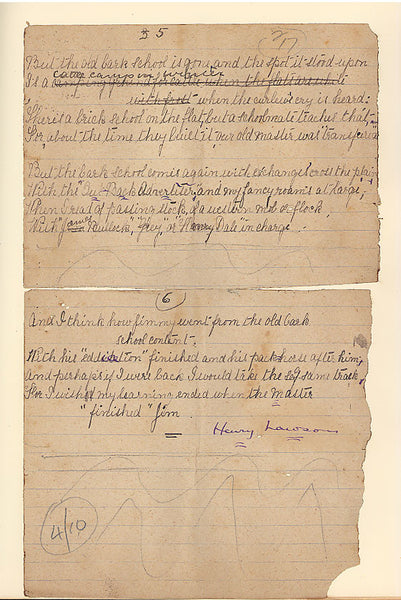 5
But the old bark school is gone, and the spot it stood upon
Cattle camp in winter
Is a when the flats are white
with frost when the curlew's cry is heard;
There's a brick school on the flat, but a schoolmate teaches that,
For, about the time they built it, our old master was "transferred
But the bark school comes again with exchanges 'cross the plain
With the "Out-Back Advertiser"; and my fancy roams at large;
When I read of passing stock, of a western mob or flock,
With "James Bullock," "Grey," or "Henry Dale" in charge.
6
And I think how Jimmy went from the old bark
school content,
With his "education" finished and his pack-horse after him;
And perhaps if I were back I would take the self-same track,
For I wish my learning ended when the Master
"finished" Jim.
Henry Lawson
4/10